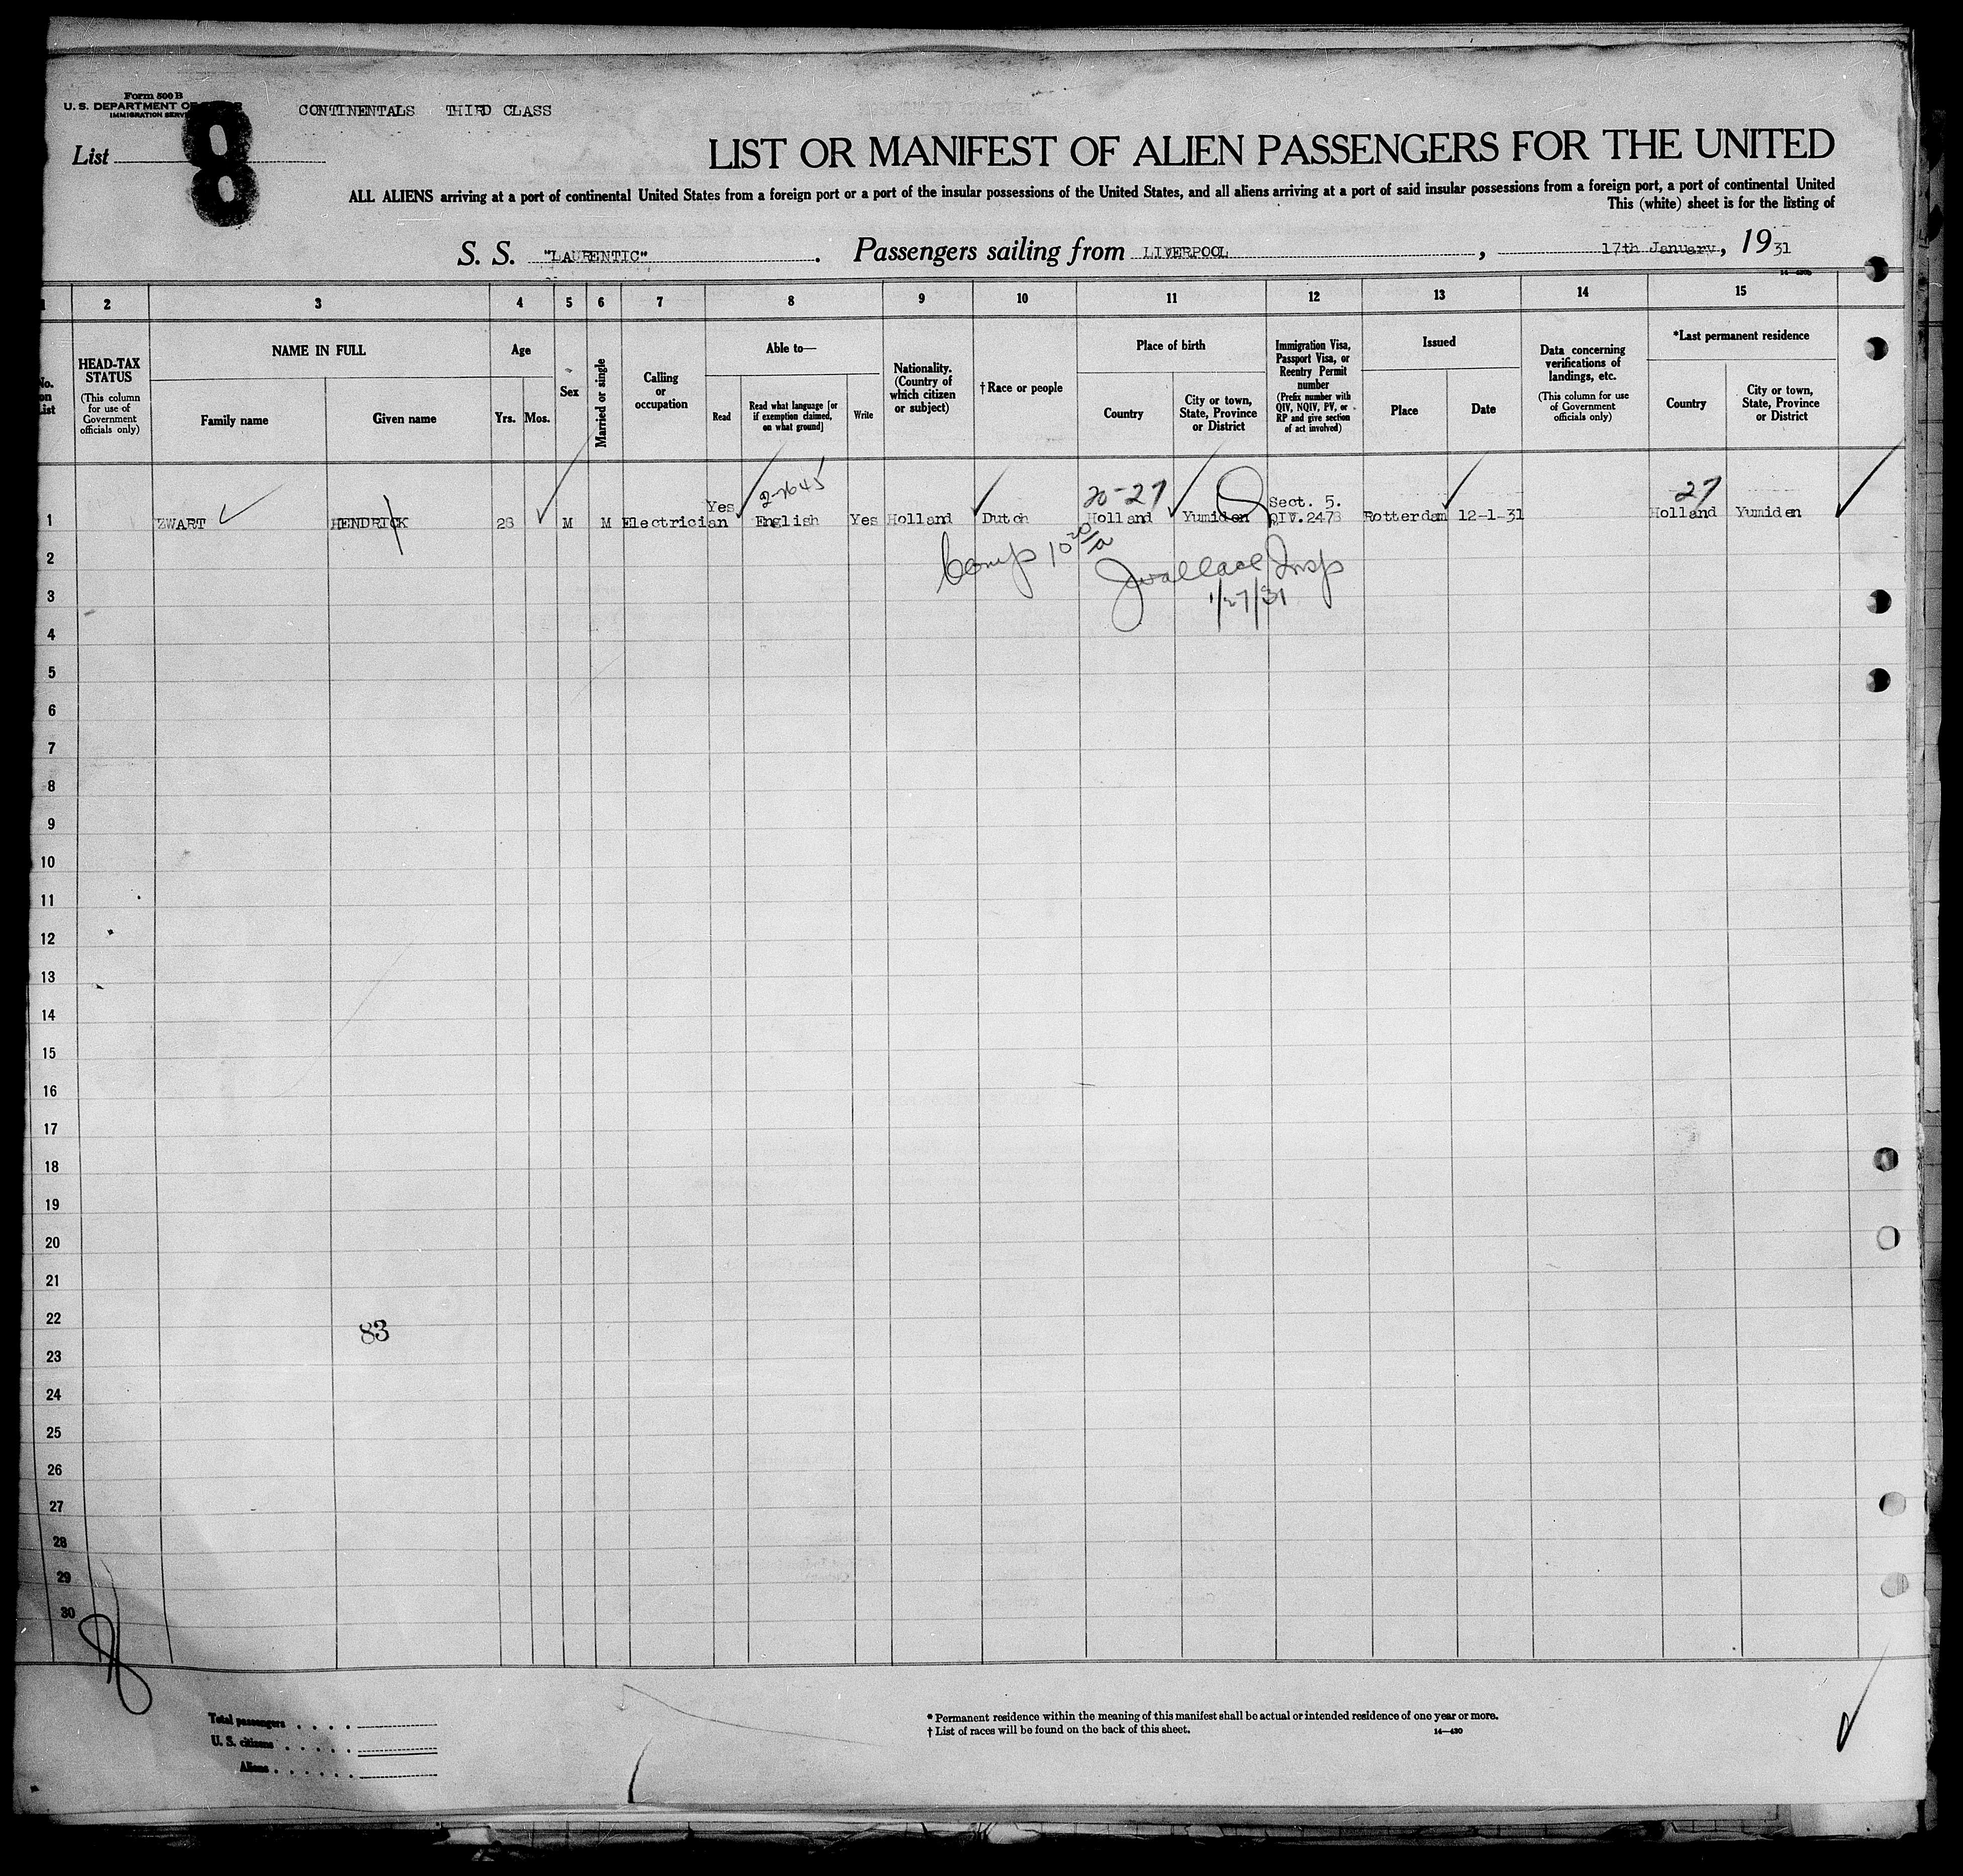 Form 500 B
U. S. DEPARTMENT OF
IMMIGRATION SERV
CONTINENTALS THIRD CLASS
List
8
LIST OR MANIFEST OF ALIEN PASSENGERS FOR THE UNITED
ALL ALIENS arriving at a port of continental United States from a foreign port or a port of the insular possessions of the United States, and all aliens arriving at a port of said insular possessions from a foreign port, a port of continental United
This (white) sheet is for the listing of
S. S. "LAURENTIC". Passengers sailing from LIVERPOOL, 17th January, 1931
1 2 3 4 5 6 7 8 9 10 11 12 13 14 15
No. on List
HEAD-TAX STATUS
(This column for use of Government officials only)
NAME IN FULL
Family name
Given name
Age
Yrs. Mos.
Sex
Married or single
Calling or occupation
Able to—
Read
Read what language [or if exemption claimed, on what ground]
Write
Nationality. (Country of which citizen or subject)
† Race or people
Place of birth
Country
City or town, State, Province or District
Immigration Visa, Passport Visa, or Reentry Permit number
(Prefix number with QIV, NQIV, PV, or RP and give section of act involved)
Issued
Place
Date
Data concerning verifications of landings, etc.
(This column for use of Government officials only)
*Last permanent residence
Country
City or town, State, Province or District
20-27
27
Yes
Sect. 5.
1 ZWART HENDRICK M M Electrician English Yes Holland Dutch Holland Yumiden QIV.2473 Rotterdam 12-1-31 Holland Yumiden
JWallace Insp
1/27/31
2
3
4
5
6
7
8
9
10
11
12
13
14
15
16
17
18
19
20
21
22
83
23
24
25
26
27
28
29
30
8
Total passengers . . . .
U. S. citizens . . . . .
Aliens . . . . . .
* Permanent residence within the meaning of this manifest shall be actual or intended residence of one year or more.
† List of races will be found on the back of this sheet.
14—430